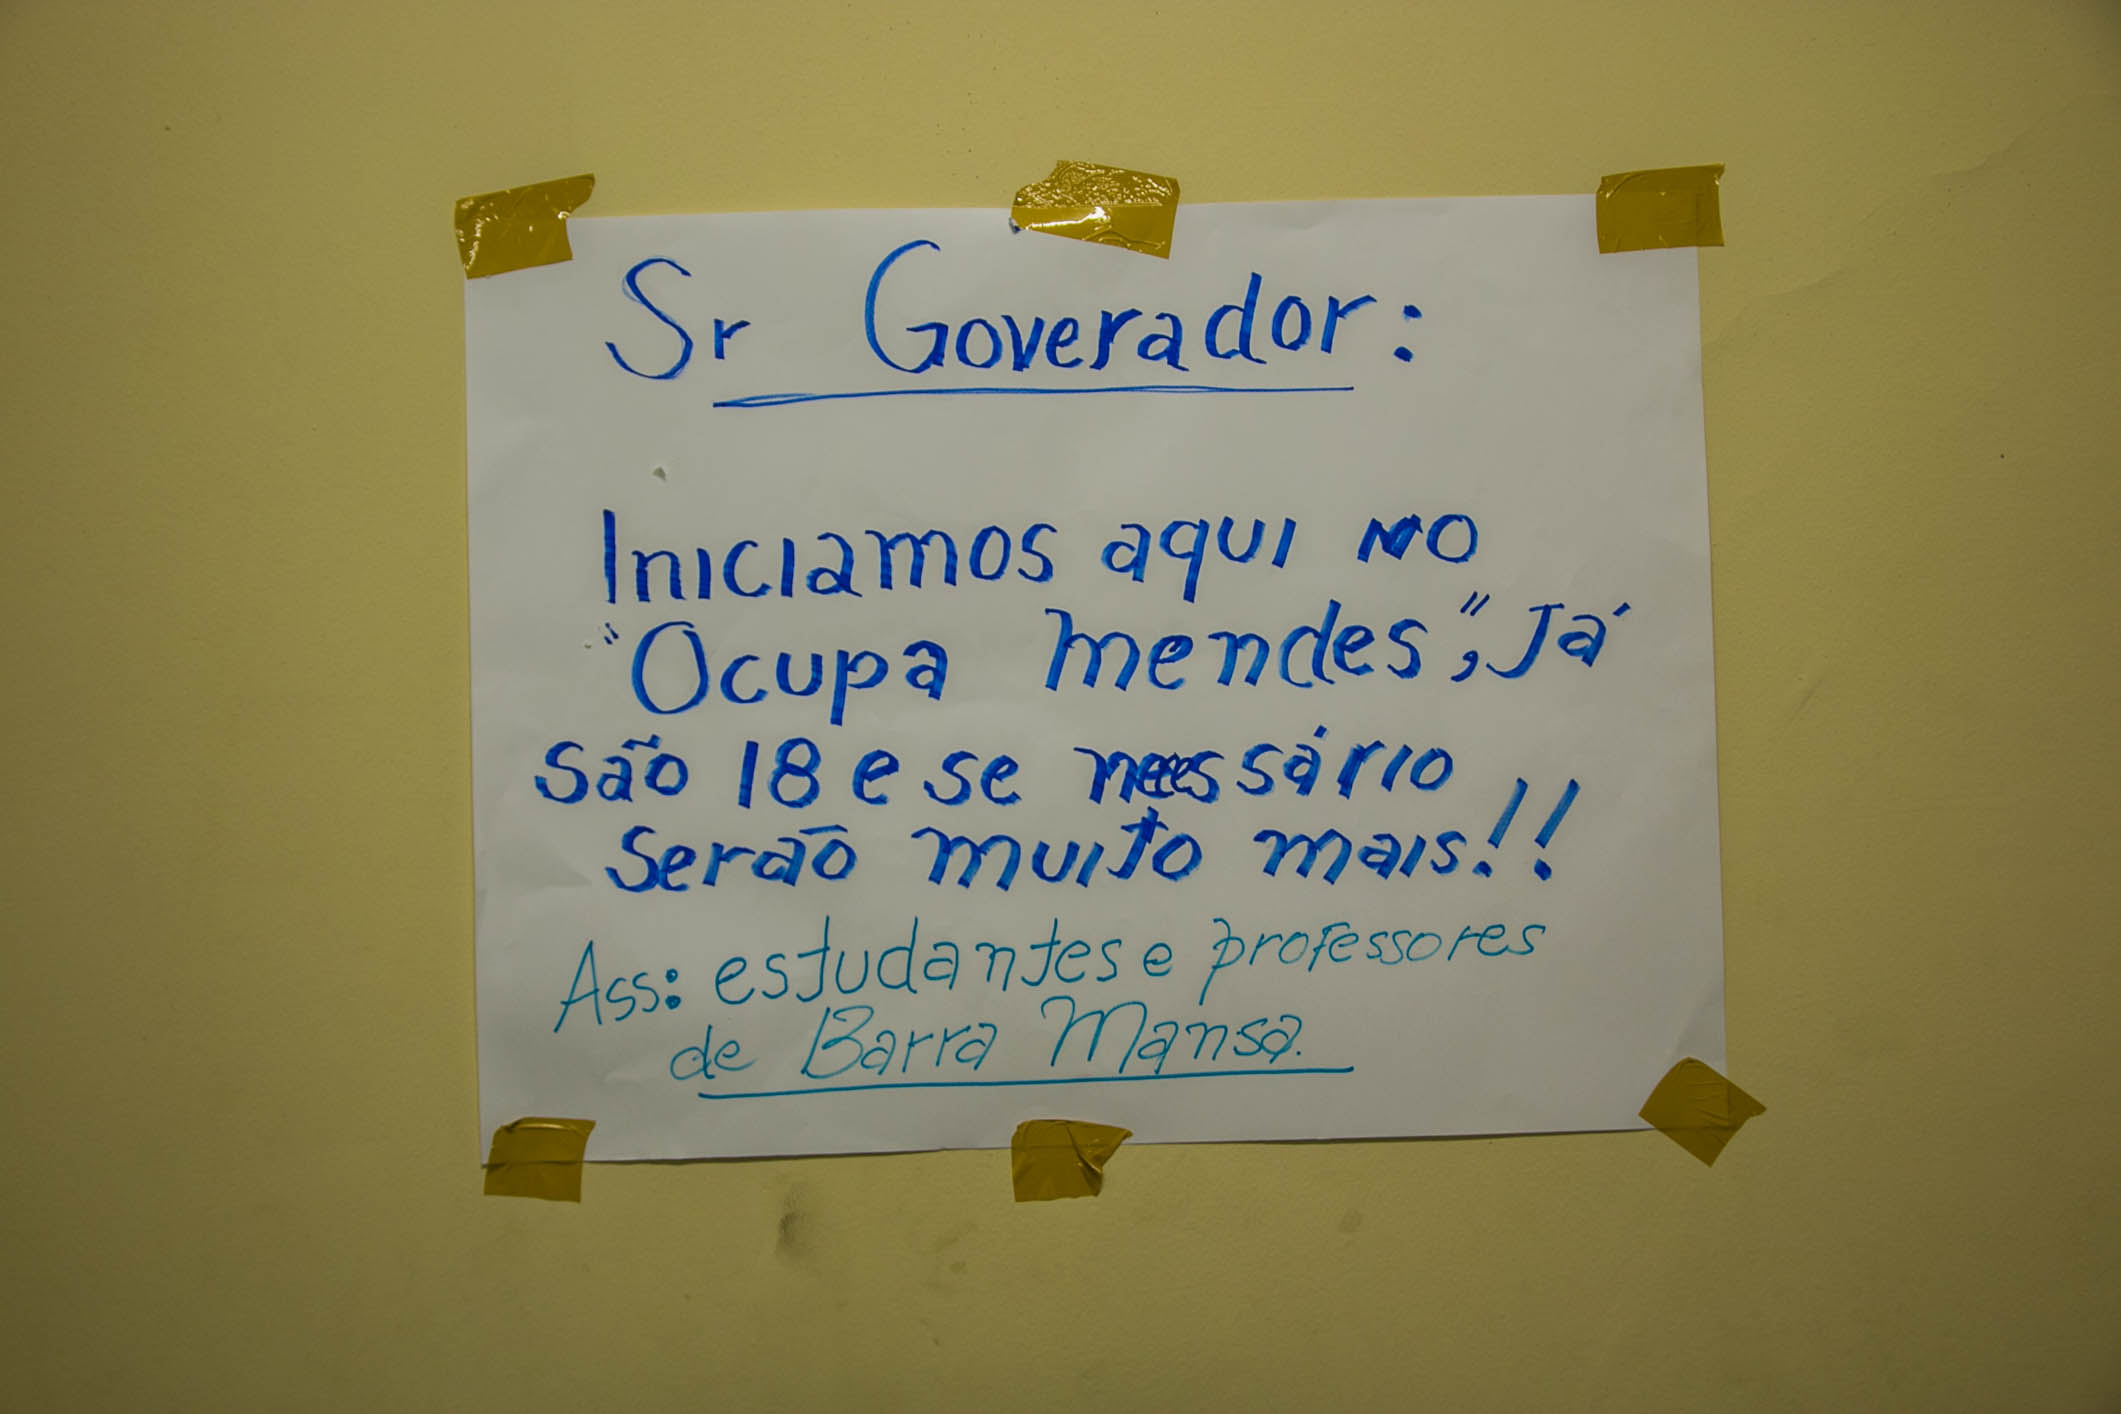 Sr Goverador:
Iniciamos aqui no
"Ocupa Mendes", Já
são 18 e se necessário
serão muito mais!!
Ass: estudantes e professores
de Barra Mansa.